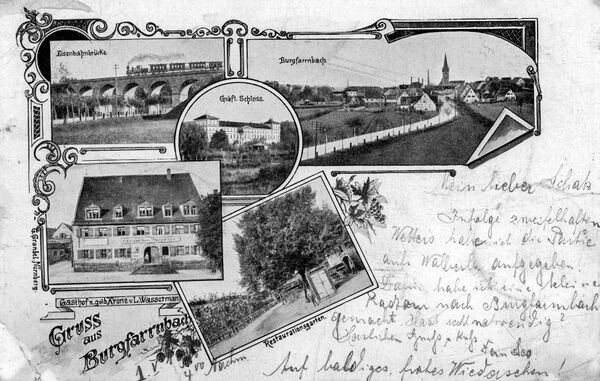 Eisenbahnbrücke
Burgfarrnbach
Gräfl. Schloss.
Gasthof z. gold. Krone v. L. Wasserman
Restaurationsgarten.
Gruss
aus
Burgfarrnbach
Mein lieber Schatz
Infolge zweifelhaften
Wetters habe ich die Partie
aufgegeben
Dafür habe ich eine kleine
Radtour nach Burgfarrnbach
gemacht. Hast
Herzlichen Gruß & Kuß
Auf baldiges, frohes Wiedersehen!